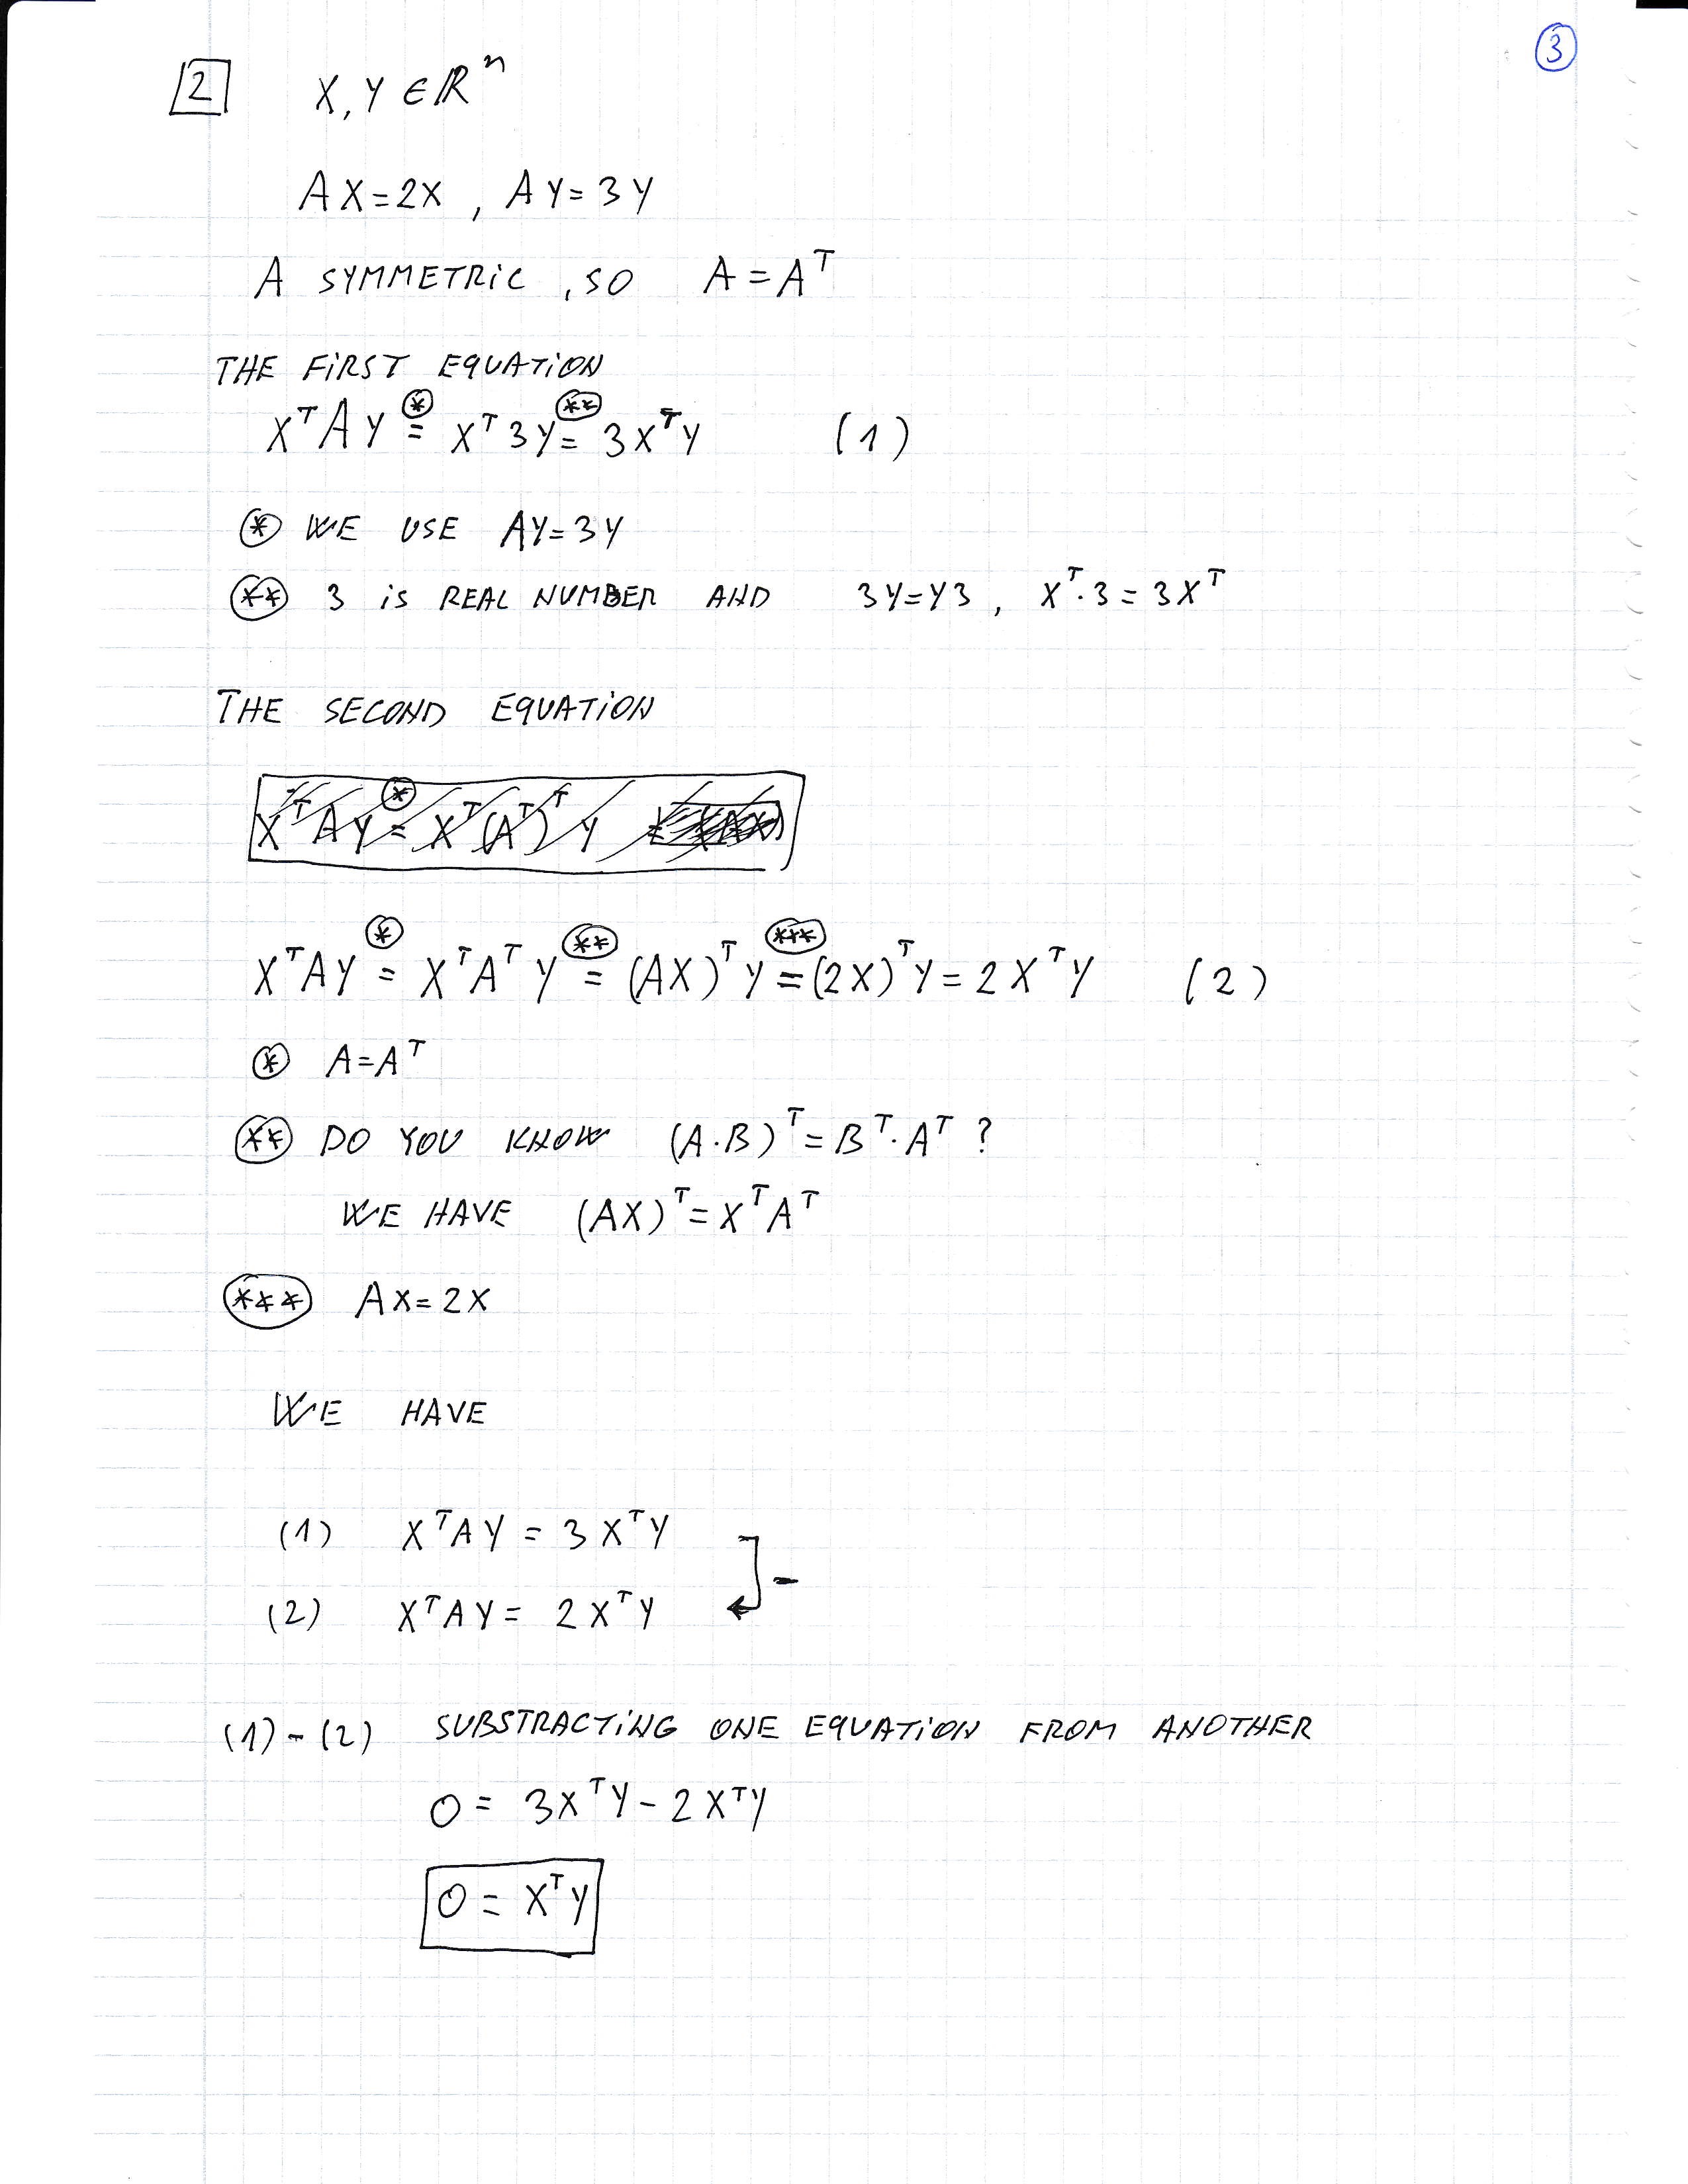 3
2 X, Y ∈ ℝⁿ
AX=2X, AY=3Y
A SYMMETRIC, SO A=Aᵀ
THE FIRST EQUATION
XᵀAY =(*) Xᵀ3Y =(**) 3XᵀY (1)
(*) WE USE AY=3Y
(**) 3 is REAL NUMBER AND 3Y=Y3, Xᵀ·3=3Xᵀ
THE SECOND EQUATION
XᵀAY =(*) Xᵀ(Aᵀ)ᵀY
XᵀAY =(*) XᵀAᵀY =(**) (AX)ᵀY =(***) (2X)ᵀY = 2XᵀY (2)
(*) A=Aᵀ
(**) DO YOU KNOW (A·B)ᵀ=Bᵀ·Aᵀ?
WE HAVE (AX)ᵀ=XᵀAᵀ
(***) AX=2X
WE HAVE
(1) XᵀAY = 3XᵀY
(2) XᵀAY = 2XᵀY ] -
(1)-(2) SUBSTRACTING ONE EQUATION FROM ANOTHER
0 = 3XᵀY - 2XᵀY
0 = XᵀY